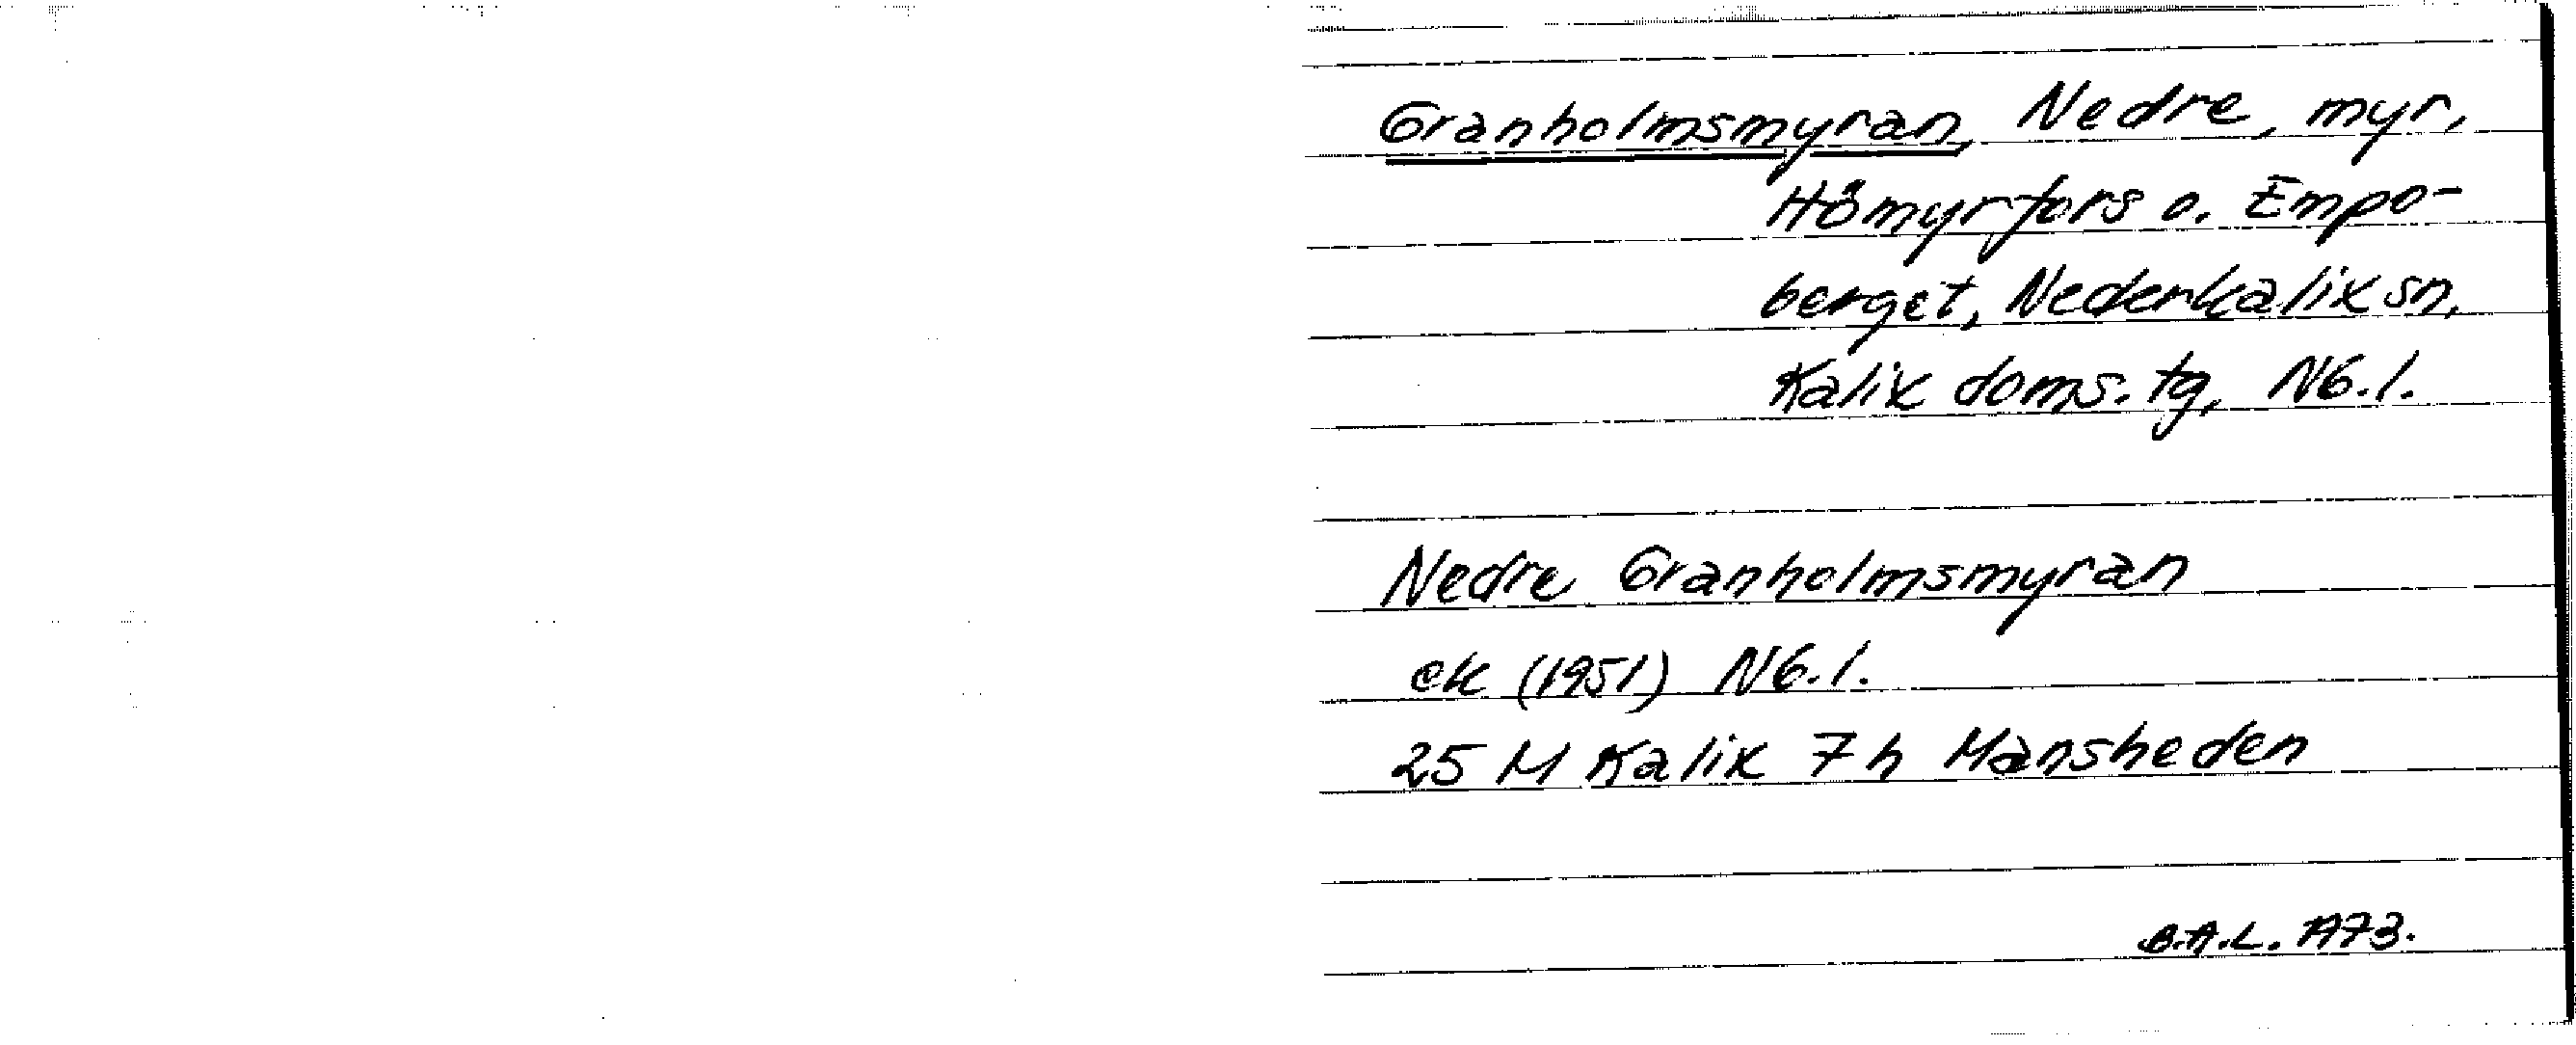 Granholmsmyran, Nedre, myr,
Hömyrfors o. Empo-
berget, Nederkalix sn,
Kalix doms. tg, Nb. l.
Nedre Granholmsmyran
ek (1951) Nb. l.
25 M Kalix 7h Månsheden
B.A.L. A73.